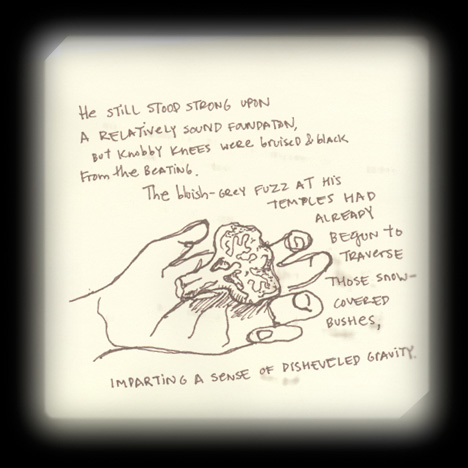 He STILL STOOD STRONG UPON
A RELATIVELY SOUND FOUNDATON,
BuT KNOBBY KNEES WERE bruised & black
From the BEATING.
The bbish-GREY FUZZ AT HIS
TEMPLES HAD
ALREADY
BEGUN to
TRAVERSE
THOSE SNOW-
COVERED
BUSHES,
IMPARTING A SENSE OF DISHEVELED GRAVITY.